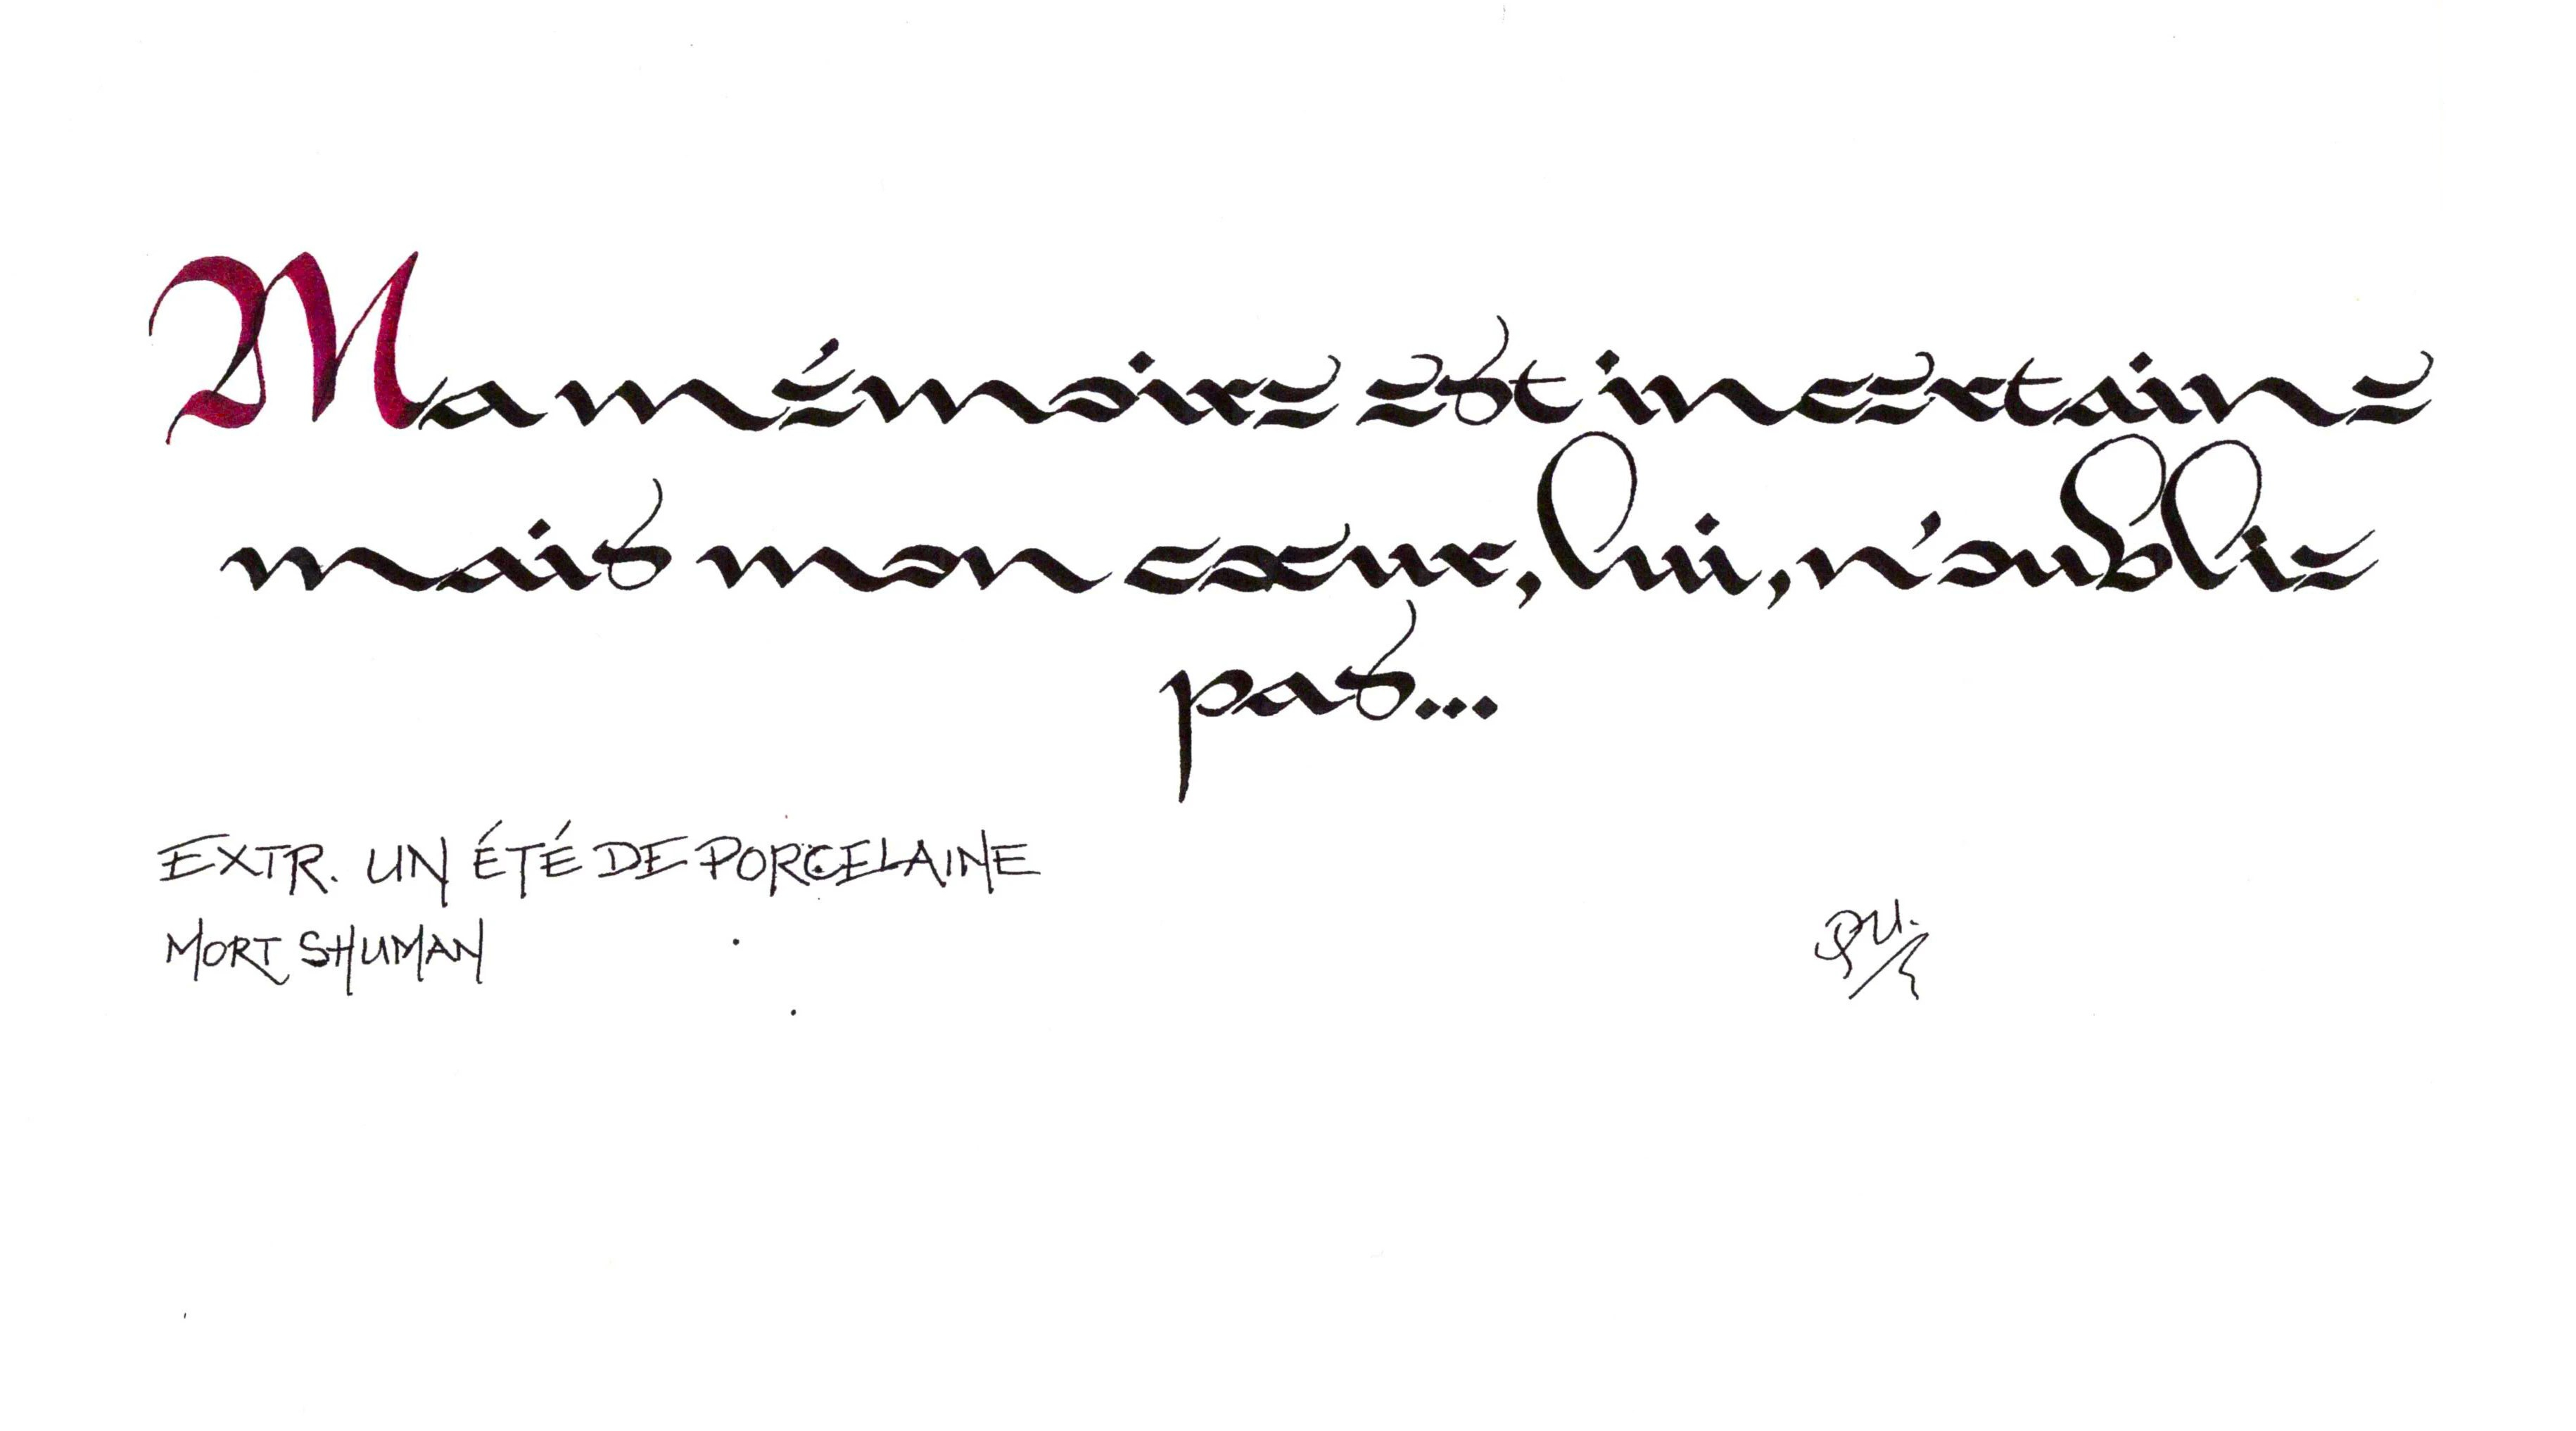 Ma mémoire est incertaine
mais mon cœur, lui, n'oublie
pas...
EXTR. UN ÉTÉ DE PORCELAINE
MORT SHUMAN